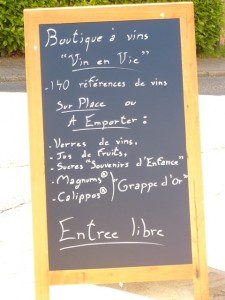 Boutique à vins
"Vin en Vie"
- 140 références de vins
Sur Place ou
A Emporter :
- Verres de vins,
- Jus de fruits,
- Sucres "Souvenirs d'Enfance"
- Magnums®
- Calippos® } "Grappe d'Or"
Entree libre